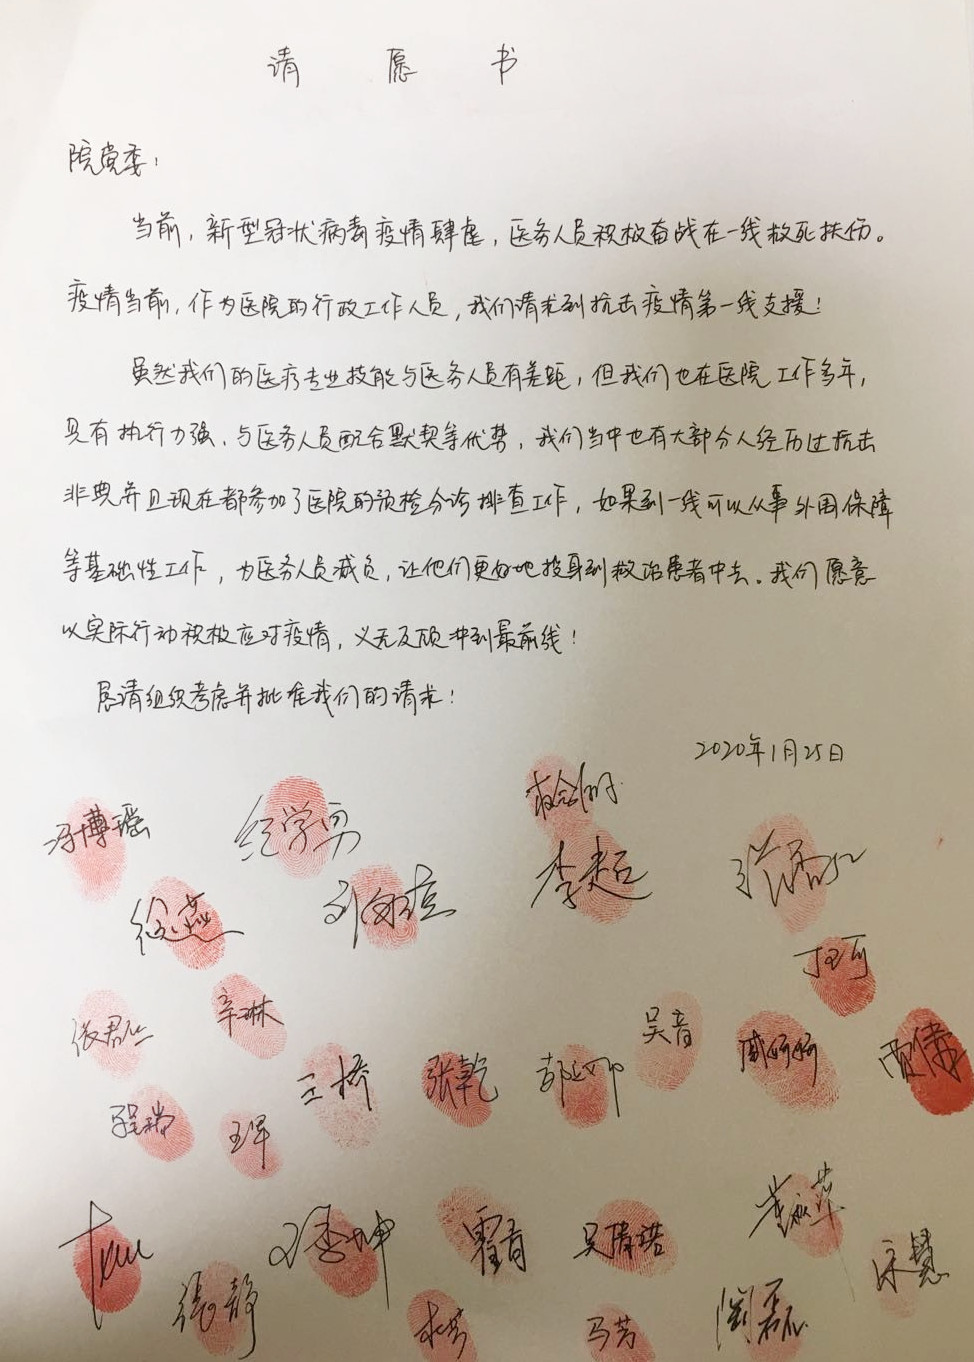 请愿书
院党委：
当前，新型冠状病毒疫情肆虐，医务人员积极奋战在一线救死扶伤。
疫情当前，作为医院的行政工作人员，我们请求到抗击疫情第一线支援！
虽然我们的医疗专业技能与医务人员有差距，但我们也在医院工作多年，
具有执行力强、与医务人员配合默契等优势，我们当中也有大部分人经历过抗击
非典并且现在都参加了医院的预检分诊排查工作，如果到一线可以从事外围保障
等基础性工作，为医务人员减负，让他们更好地投身到救治患者中去。我们愿意
以实际行动积极应对疫情，义无反顾冲到最前线！
恳请组织考虑并批准我们的请求！
2020年1月25日
冯博瑶
纪学勇
李超
徐燕
丁可
张君丛
辛琳
吴音
王桥
张乾
戚婷婷
贾伟
程瑞
王军
霍青
吴倩塔
董淑苹
宋慧
张静
杜芳
马芳
闫磊